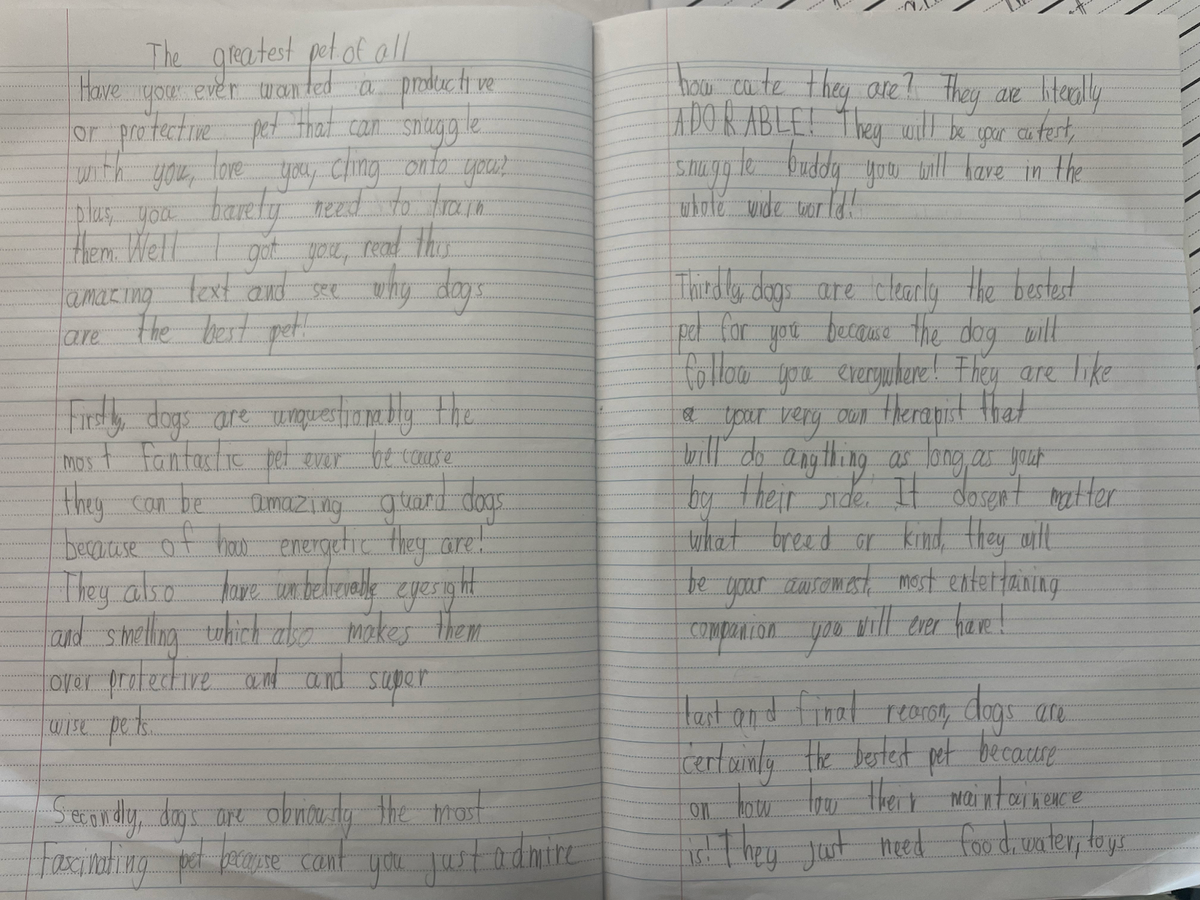 The greatest pet of all
Have you ever wanted a productive
or protective pet that can snuggle
with you, love you, cling onto you?
plus, you barely need to train
them. Well I got you, read this
amazing text and see why dogs
are the best pet!
Firstly, dogs are unquestionably the
most fantastic pet ever because
they can be amazing guard dogs
because of how energetic they are!
They also have unbelievable eyesight
and smelling which also makes them
over protective and and super
wise pets.
Secondly, dogs are obviously the most
fascinating pet because cant you just admire
how cute they are? They are literally
ADORABLE! They will be your cutest,
snuggle buddy you will have in the
whole wide world!
Thirdly, dogs are clearly the bestest
pet for you because the dog will
follow you everywhere! They are like
a your very own therapist that
will do anything as long as your
by their side. It dosen't matter
what breed or kind, they will
be your awsomest, most entertaining
companion you will ever have!
last and final reason, dogs are
certainly the bestest pet because
on how low their maintainence
is! They just need food, water, toys